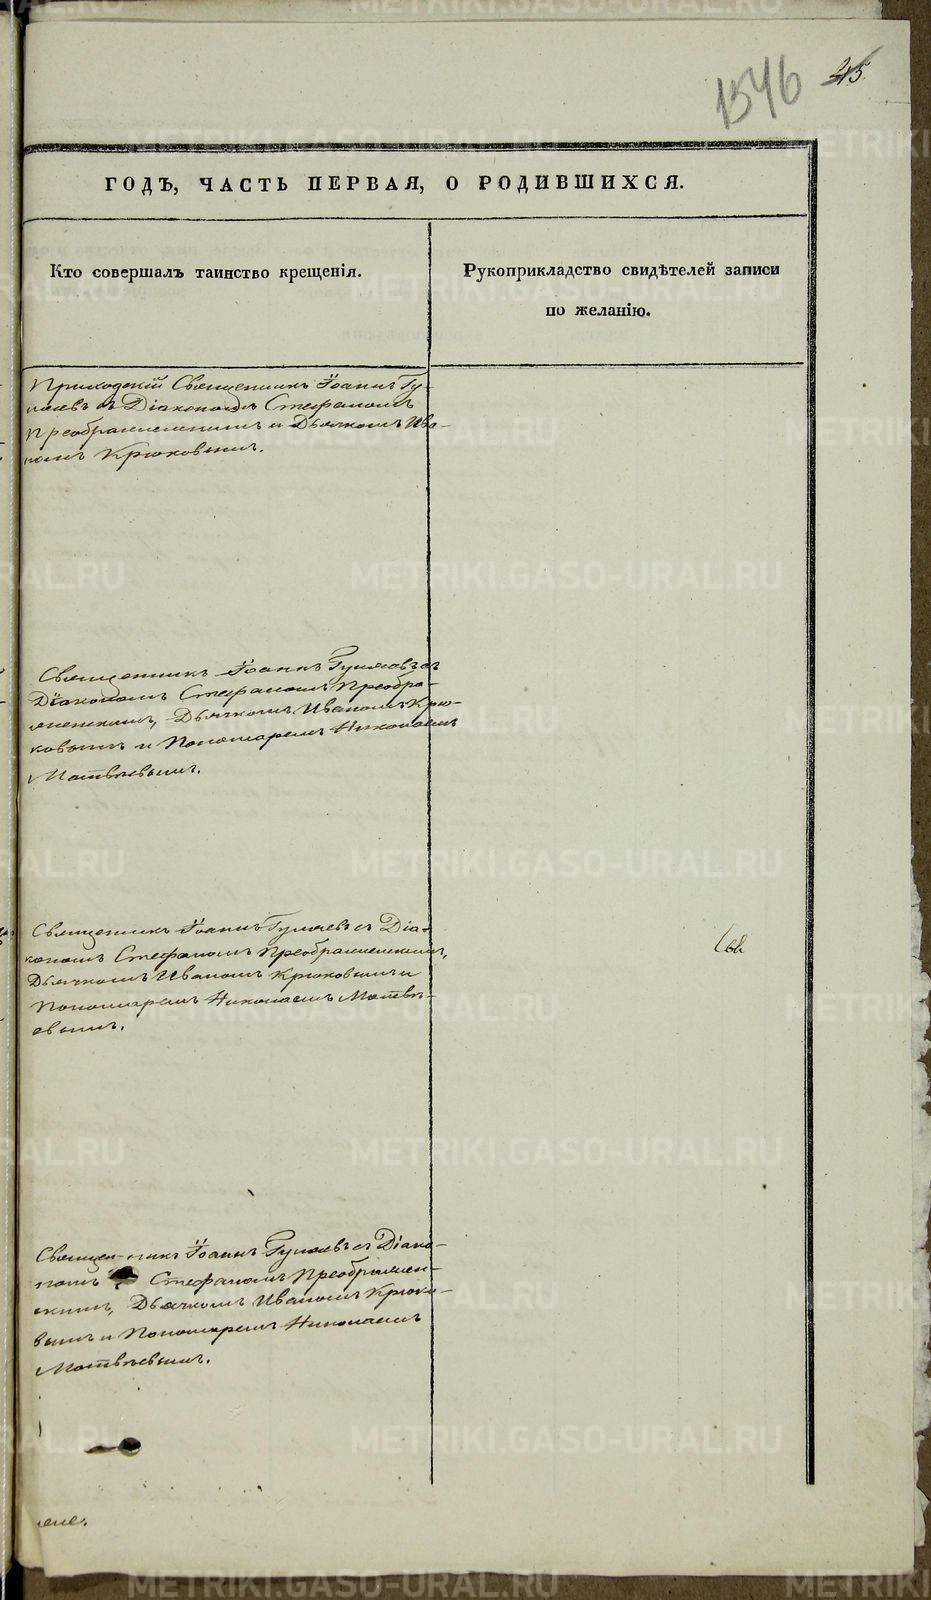 1546 45
ГОДЪ, ЧАСТЬ ПЕРВАЯ, О РОДИВШИХСЯ.
Кто совершалъ таинство крещенія.
Рукоприкладство свидѣтелей записи
по желанію.
Приходскій Священникъ Іоаннъ Гу-
ляевъ съ Діакономъ Стефаномъ
Преображенскимъ и Дьячкомъ Ива-
номъ Крюковымъ.
Священникъ Іоаннъ Гуляевъ съ
Діакономъ Стефаномъ Преобра-
женскимъ, Дьячкомъ Иваномъ Крю-
ковымъ и Пономаремъ Николаемъ
Матвѣевымъ.
Священникъ Іоаннъ Гуляевъ съ Діа-
кономъ Стефаномъ Преображенскимъ,
Дьячкомъ Иваномъ Крюковымъ и
Пономаремъ Николаемъ Матвѣ-
евымъ.
Священникъ Іоаннъ Гуляевъ съ Діако-
номъ Стефаномъ Преображен-
скимъ, Дьячкомъ Иваномъ Крюко-
вымъ и Пономаремъ Николаемъ
Матвѣевымъ.
METRIKI.GASO-URAL.RU